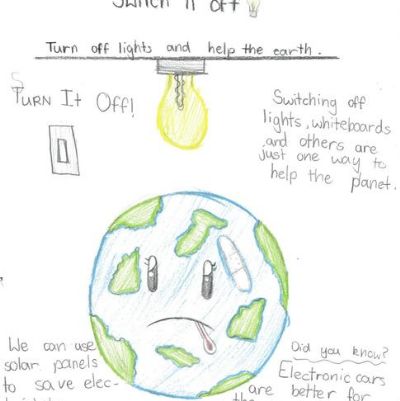 Switch it off
Turn off lights and help the earth.
Turn It Off!
Switching off
lights, whiteboards
and others are
just one way to
help the planet.
We can use
solar panels
to save elec-
Did you know?
Electronic cars
are better for
the